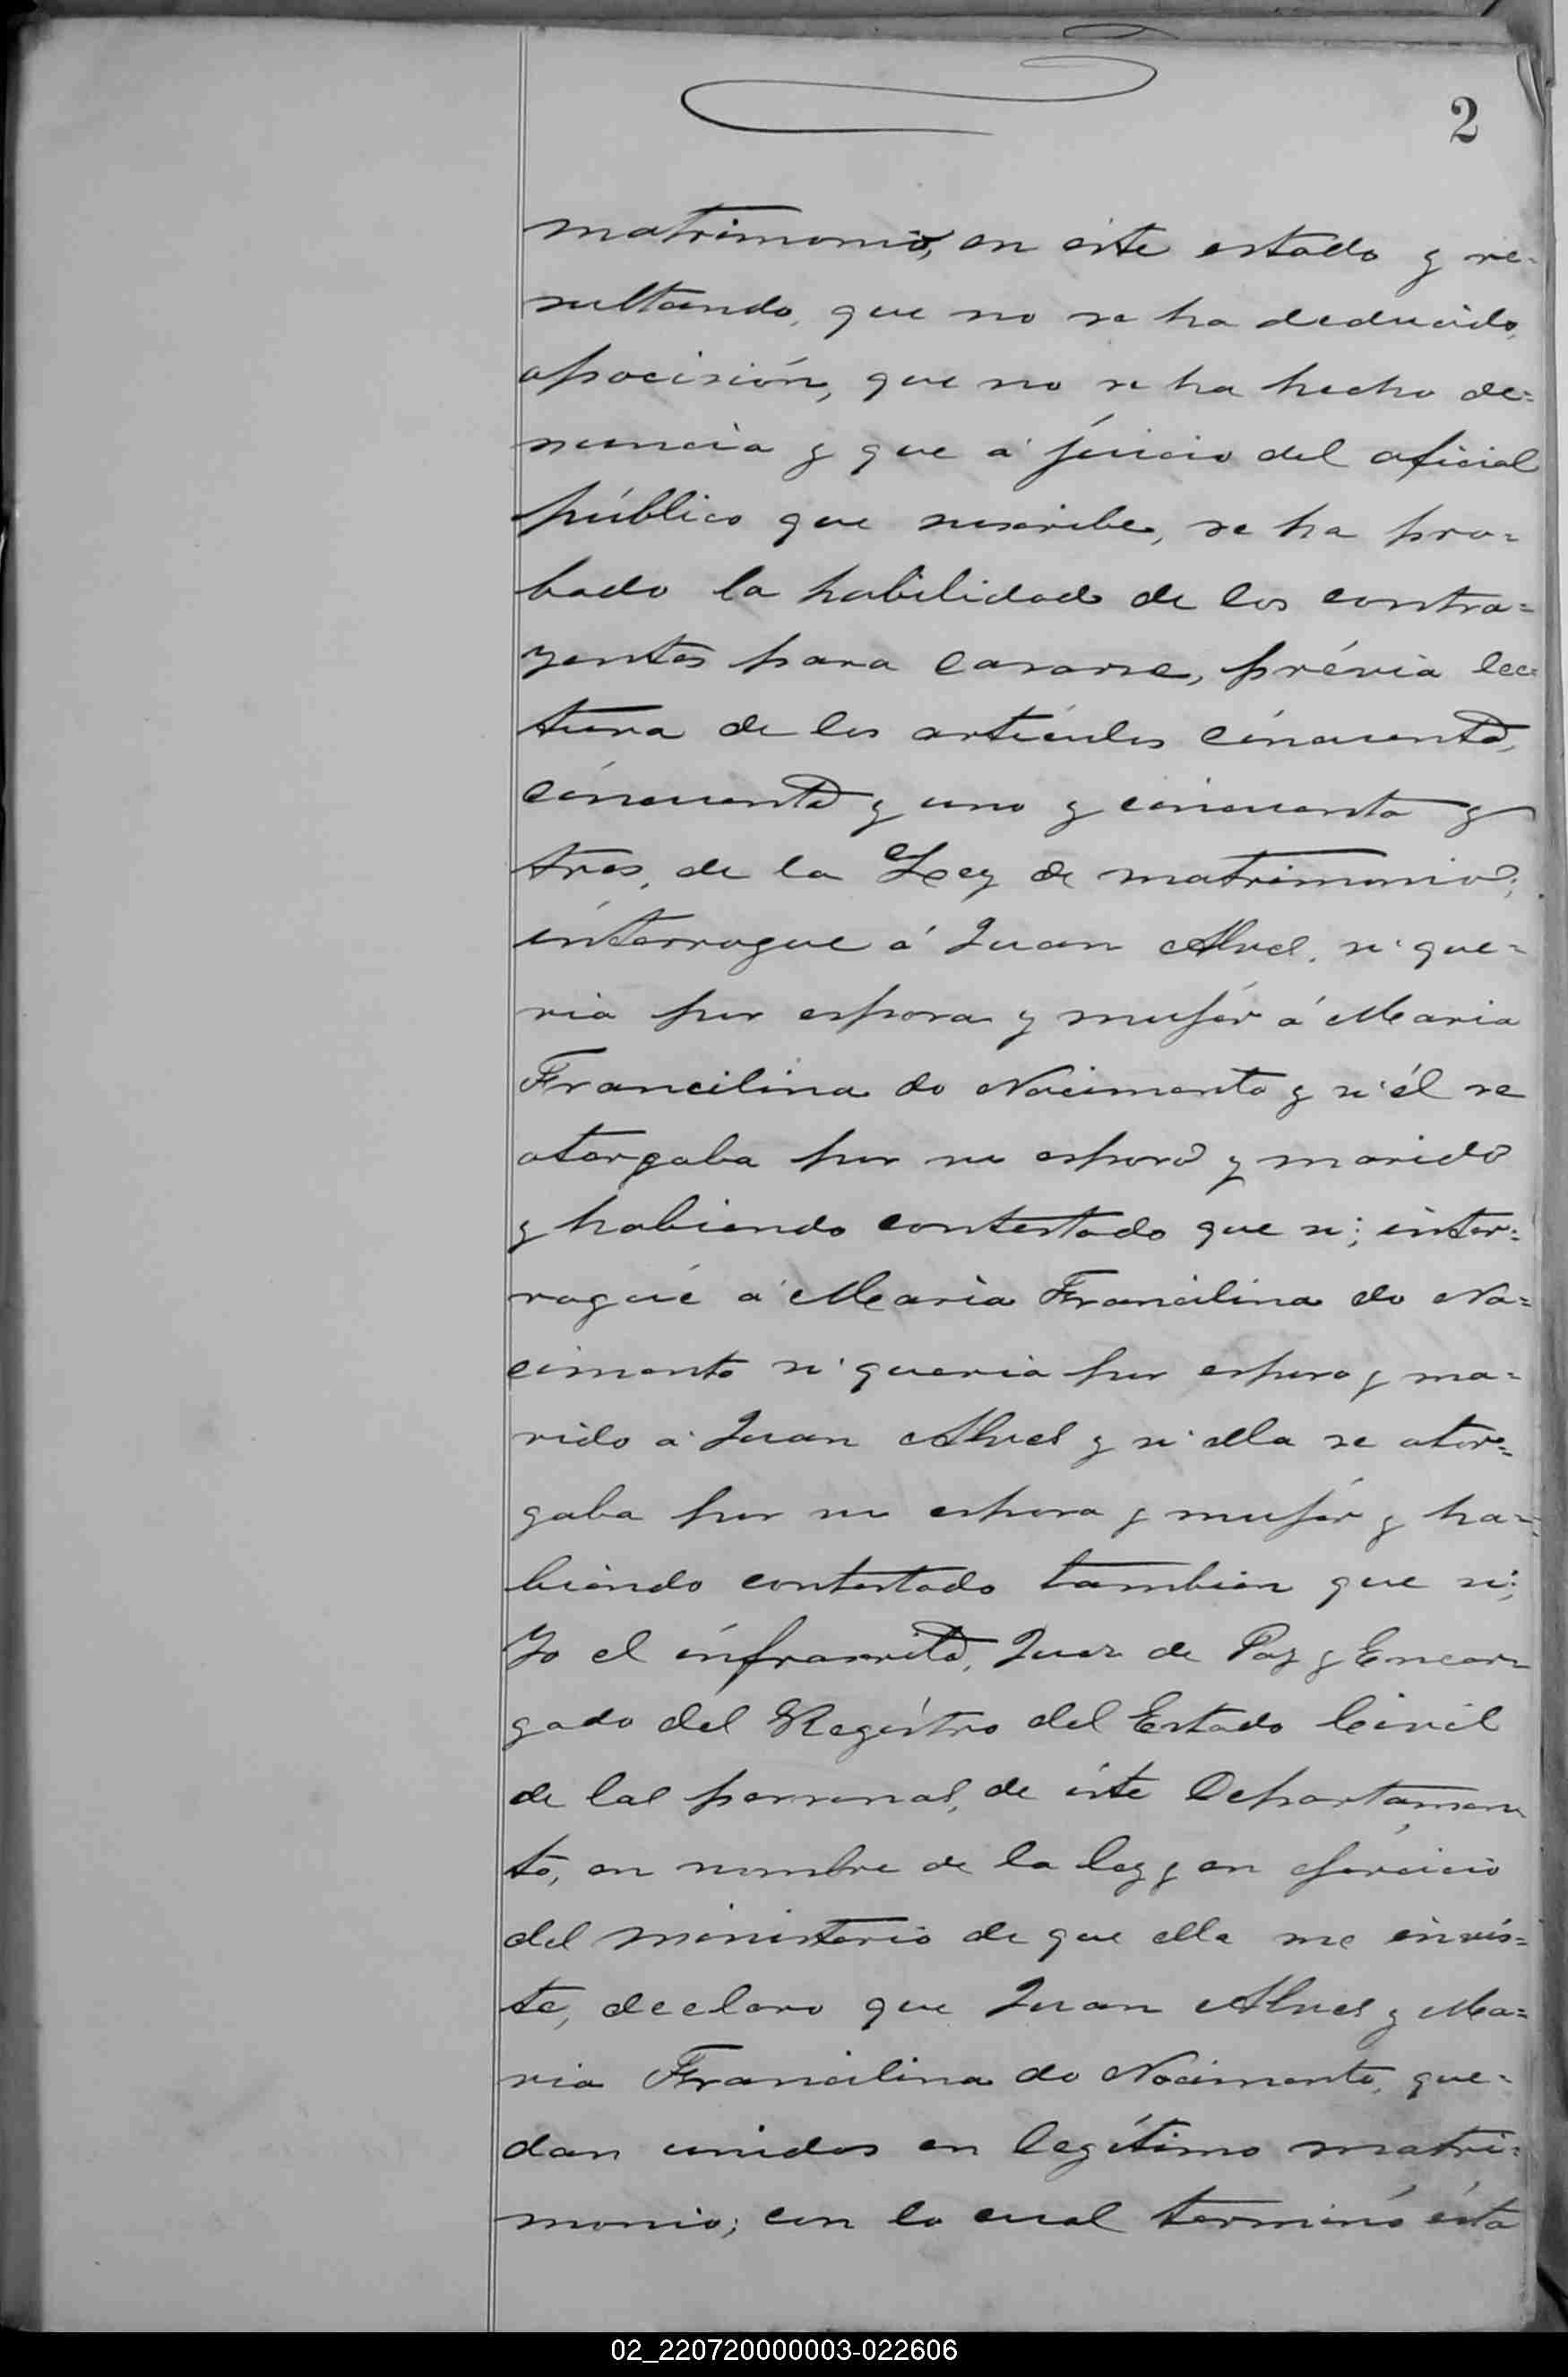 2
matrimonio, en este estado y re=
sultando, que no se ha deducido,
oposición, que no se ha hecho de=
nuncia y que á juicio del oficial
público que suscribe, se ha pro=
bado la habilidad de los contra=
yentes para casarse, prévia lec=
tura de los articulos cincuenta,
cincuenta y uno y cincuenta y
tres, de la Ley de matrimonio;
interrogue á Juan Alves, si que=
ria por esposa y mujer á Maria
Francilina do Nacimento y si él se
otorgaba por su esposo y marido
y habiendo contestado que si; inter=
rogué á Maria Francilina do Na=
cimento si queria por esposo y ma=
rido á Juan Alves y si ella se otor=
gaba por su esposa y mujer y ha=
biendo contestado tambien que si;
Yo el infrascrito, Juez de Paz y Encar=
gado del Registro del Estado Civil
de las personas, de éste Departamen
to, en nombre de la ley y en ejercicio
del ministerio de que ella me invis=
te, declaro que Juan Alves y Ma=
ria Francilina do Nacimento, que=
dan unidos en legítimo matri=
monio; con lo cual terminó ésta
02_220720000003-022606